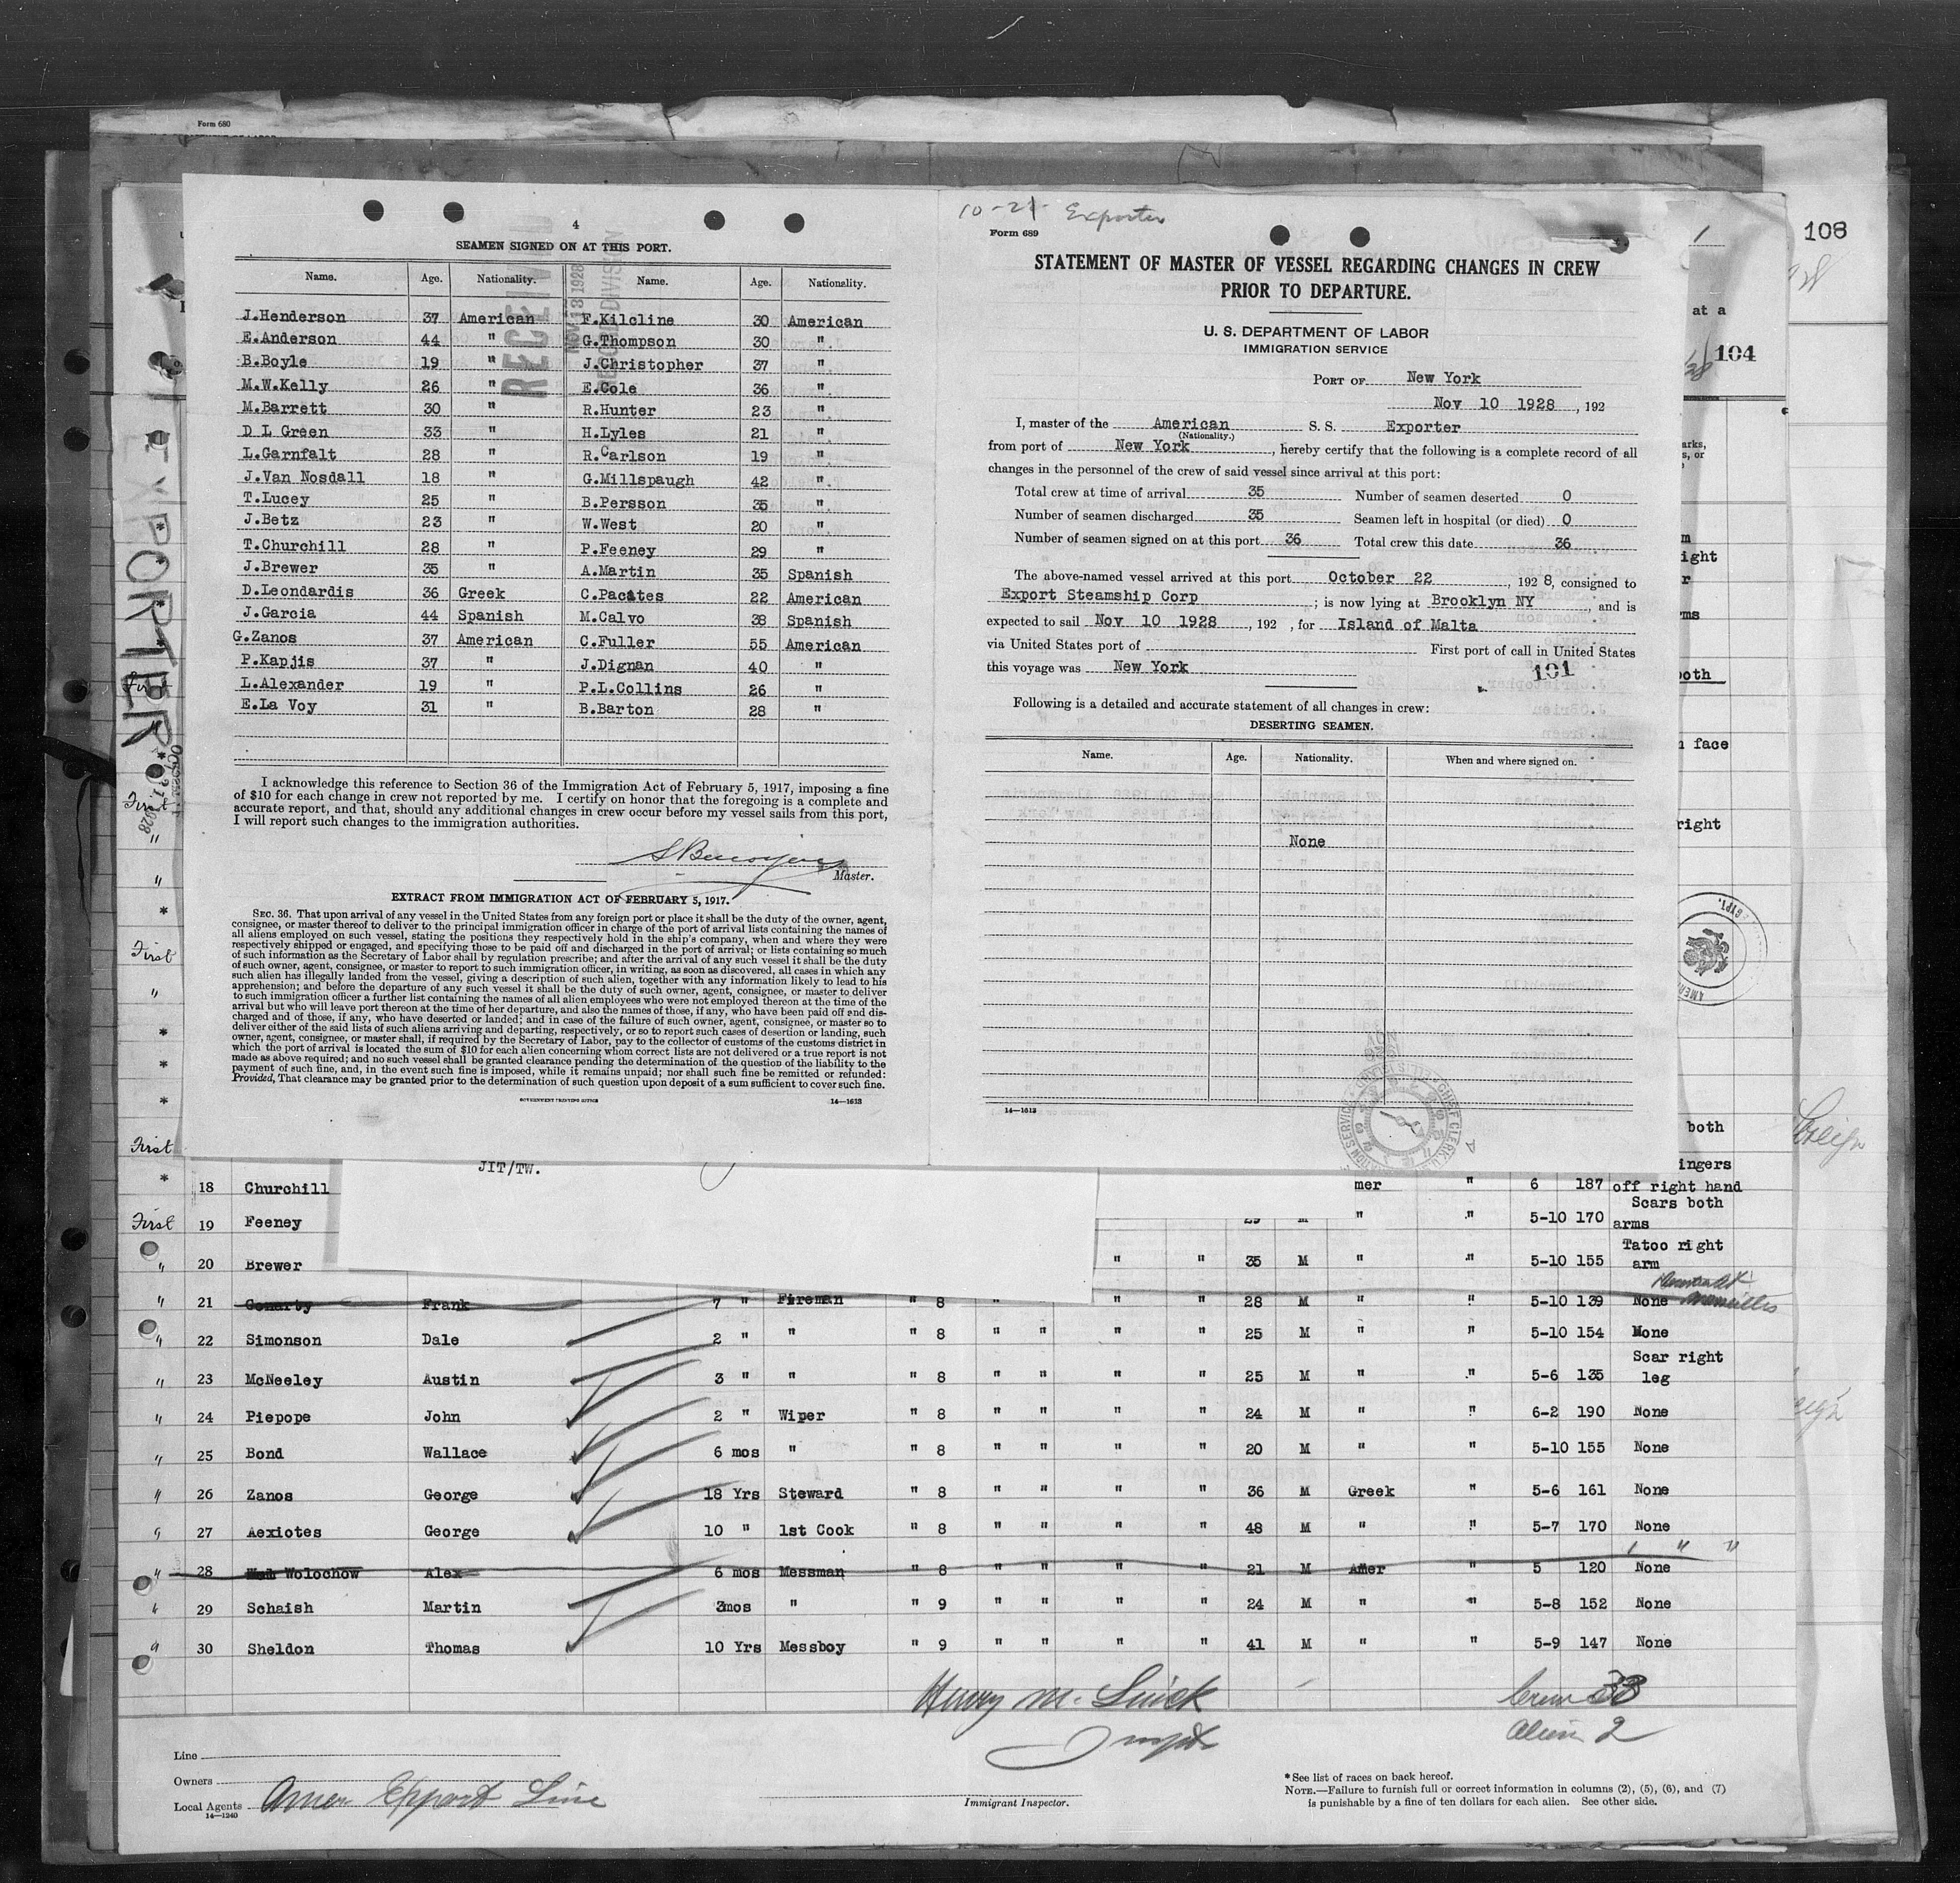 Form 680
108
104
at a
4
SEAMEN SIGNED ON AT THIS PORT.
Name. Age. Nationality. Name. Age. Nationality.
J.Henderson 37 American F.Kilcline 30 American
E.Anderson 44 " G.Thompson 30 "
B.Boyle 19 " J.Christopher 37 "
M.W.Kelly 26 " E.Cole 36 "
M.Barrett 30 " R.Hunter 23 "
D L Green 33 " H.Lyles 21 "
L.Garnfalt 28 " R.Carlson 19 "
J.Van Nosdall 18 " G.Millspaugh 42 "
T.Lucey 25 " B.Persson 35 "
J.Betz 23 " W.West 20 "
T.Churchill 28 " P.Feeney 29 "
J.Brewer 35 " A.Martin 35 Spanish
D.Leondardis 36 Greek C.Pacates 22 American
J.Garcia 44 Spanish M.Calvo 38 Spanish
G.Zanos 37 American C.Fuller 55 American
P.Kapjis 37 " J.Dignan 40 "
L.Alexander 19 " P.L.Collins 26 "
E.La Voy 31 " B.Barton 28 "
RECEIVED
NOV 13 1928
RECORD DIVISION
I acknowledge this reference to Section 36 of the Immigration Act of February 5, 1917, imposing a fine
of $10 for each change in crew not reported by me. I certify on honor that the foregoing is a complete and
accurate report, and that, should any additional changes in crew occur before my vessel sails from this port,
I will report such changes to the immigration authorities.
Master.
EXTRACT FROM IMMIGRATION ACT OF FEBRUARY 5, 1917.
SEC. 36. That upon arrival of any vessel in the United States from any foreign port or place it shall be the duty of the owner, agent,
consignee, or master thereof to deliver to the principal immigration officer in charge of the port of arrival lists containing the names of
all aliens employed on such vessel, stating the positions they respectively hold in the ship's company, when and where they were
respectively shipped or engaged, and specifying those to be paid off and discharged in the port of arrival; or lists containing so much
of such information as the Secretary of Labor shall by regulation prescribe; and after the arrival of any such vessel it shall be the duty
of such owner, agent, consignee, or master to report to such immigration officer, in writing, as soon as discovered, all cases in which any
such alien has illegally landed from the vessel, giving a description of such alien, together with any information likely to lead to his
apprehension; and before the departure of any such vessel it shall be the duty of such owner, agent, consignee, or master to deliver
to such immigration officer a further list containing the names of all alien employees who were not employed thereon at the time of the
arrival but who will leave port thereon at the time of her departure, and also the names of those, if any, who have been paid off and dis-
charged and of those, if any, who have deserted or landed; and in case of the failure of such owner, agent, consignee, or master so to
deliver either of the said lists of such aliens arriving and departing, respectively, or so to report such cases of desertion or landing, such
owner, agent, consignee, or master shall, if required by the Secretary of Labor, pay to the collector of customs of the customs district in
which the port of arrival is located the sum of $10 for each alien concerning whom correct lists are not delivered or a true report is not
made as above required; and no such vessel shall be granted clearance pending the determination of the question of the liability to the
payment of such fine, and, in the event such fine is imposed, while it remains unpaid; nor shall such fine be remitted or refunded:
Provided, That clearance may be granted prior to the determination of such question upon deposit of a sum sufficient to cover such fine.
GOVERNMENT PRINTING OFFICE 14—1613
10-21- Exporter
Form 689
STATEMENT OF MASTER OF VESSEL REGARDING CHANGES IN CREW
PRIOR TO DEPARTURE.
U. S. DEPARTMENT OF LABOR
IMMIGRATION SERVICE
PORT OF New York
Nov 10 1928 , 192
I, master of the American S. S. Exporter
(Nationality.)
from port of New York , hereby certify that the following is a complete record of all
changes in the personnel of the crew of said vessel since arrival at this port:
Total crew at time of arrival 35 Number of seamen deserted 0
Number of seamen discharged 35 Seamen left in hospital (or died) 0
Number of seamen signed on at this port 36 Total crew this date 36
The above-named vessel arrived at this port October 22 , 192 8, consigned to
Export Steamship Corp ; is now lying at Brooklyn NY , and is
expected to sail Nov 10 1928 , 192 , for Island of Malta
via United States port of First port of call in United States
this voyage was New York 101
Following is a detailed and accurate statement of all changes in crew:
DESERTING SEAMEN.
Name. Age. Nationality. When and where signed on.
None
14—1613
EXPORTER
JIT/TW.
18 Churchill mer " 6 187 off right hand
First 19 Feeney 29 M " " 5-10 170 Scars both arms
" 20 Brewer " " 35 M " " 5-10 155 Tatoo right arm
" 21 Gonarty Frank 7 " Fireman " 8 " " " " 28 M " " 5-10 139 None
" 22 Simonson Dale 2 " " " 8 " " " " 25 M " " 5-10 154 None
" 23 McNeeley Austin 3 " " " 8 " " " " 25 M " " 5-6 135 Scar right leg
" 24 Piepope John 2 " Wiper " 8 " " " " 24 M " " 6-2 190 None
" 25 Bond Wallace 6 mos " " 8 " " " " 20 M " " 5-10 155 None
" 26 Zanos George 18 Yrs Steward " 8 " " " " 36 M Greek " 5-6 161 None
" 27 Aexiotes George 10 " 1st Cook " 8 " " " " 48 M " " 5-7 170 None
" 28 Wolochow Alex 6 mos Messman " 8 " " " " 21 M Amer " 5 120 None
" 29 Schaish Martin 3mos " " 9 " " " " 24 M " " 5-8 152 None
" 30 Sheldon Thomas 10 Yrs Messboy " 9 " " " " 41 M " " 5-9 147 None
Crew 33
Alien 2
Line
Owners
Local Agents Amer Export Line
14—1240
Immigrant Inspector.
* See list of races on back hereof.
NOTE.—Failure to furnish full or correct information in columns (2), (5), (6), and (7)
is punishable by a fine of ten dollars for each alien. See other side.